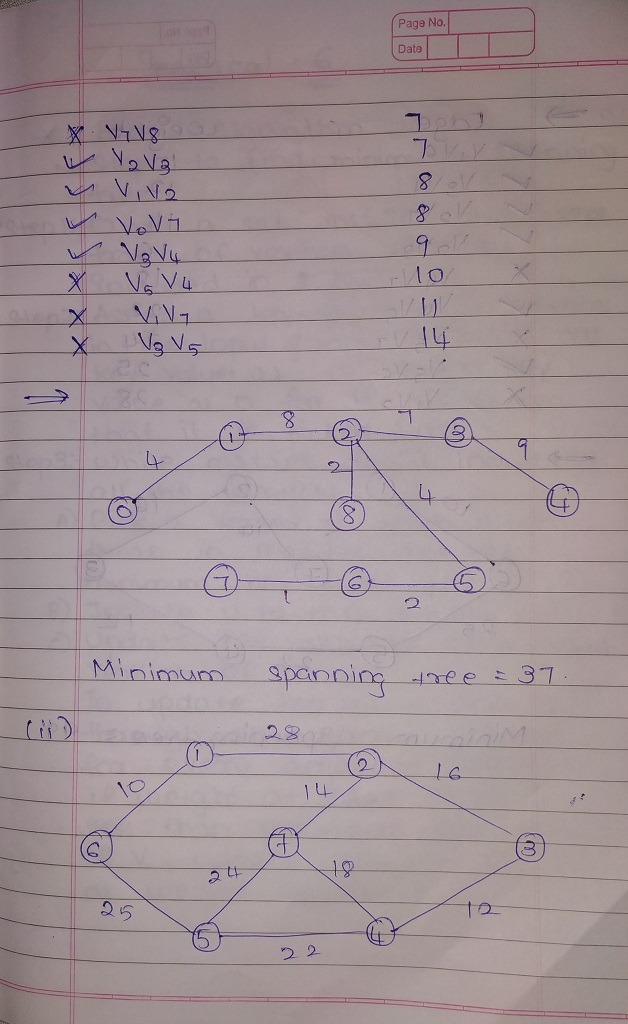 Page No.
Date
✗ V7V8 7
✓ V2V3 7
✓ V1V2 8
✓ V0V7 8
✓ V3V4 9
✗ V5V4 10
✗ V1V7 11
✗ V3V5 14
→
1 8 2 7 3
4 2 4 9
0 8 4
7 1 6 2 5
Minimum spanning tree = 37.
(ii)
1 28 2
10 14 16
6 7 3
24 18
25 12
5 22 4